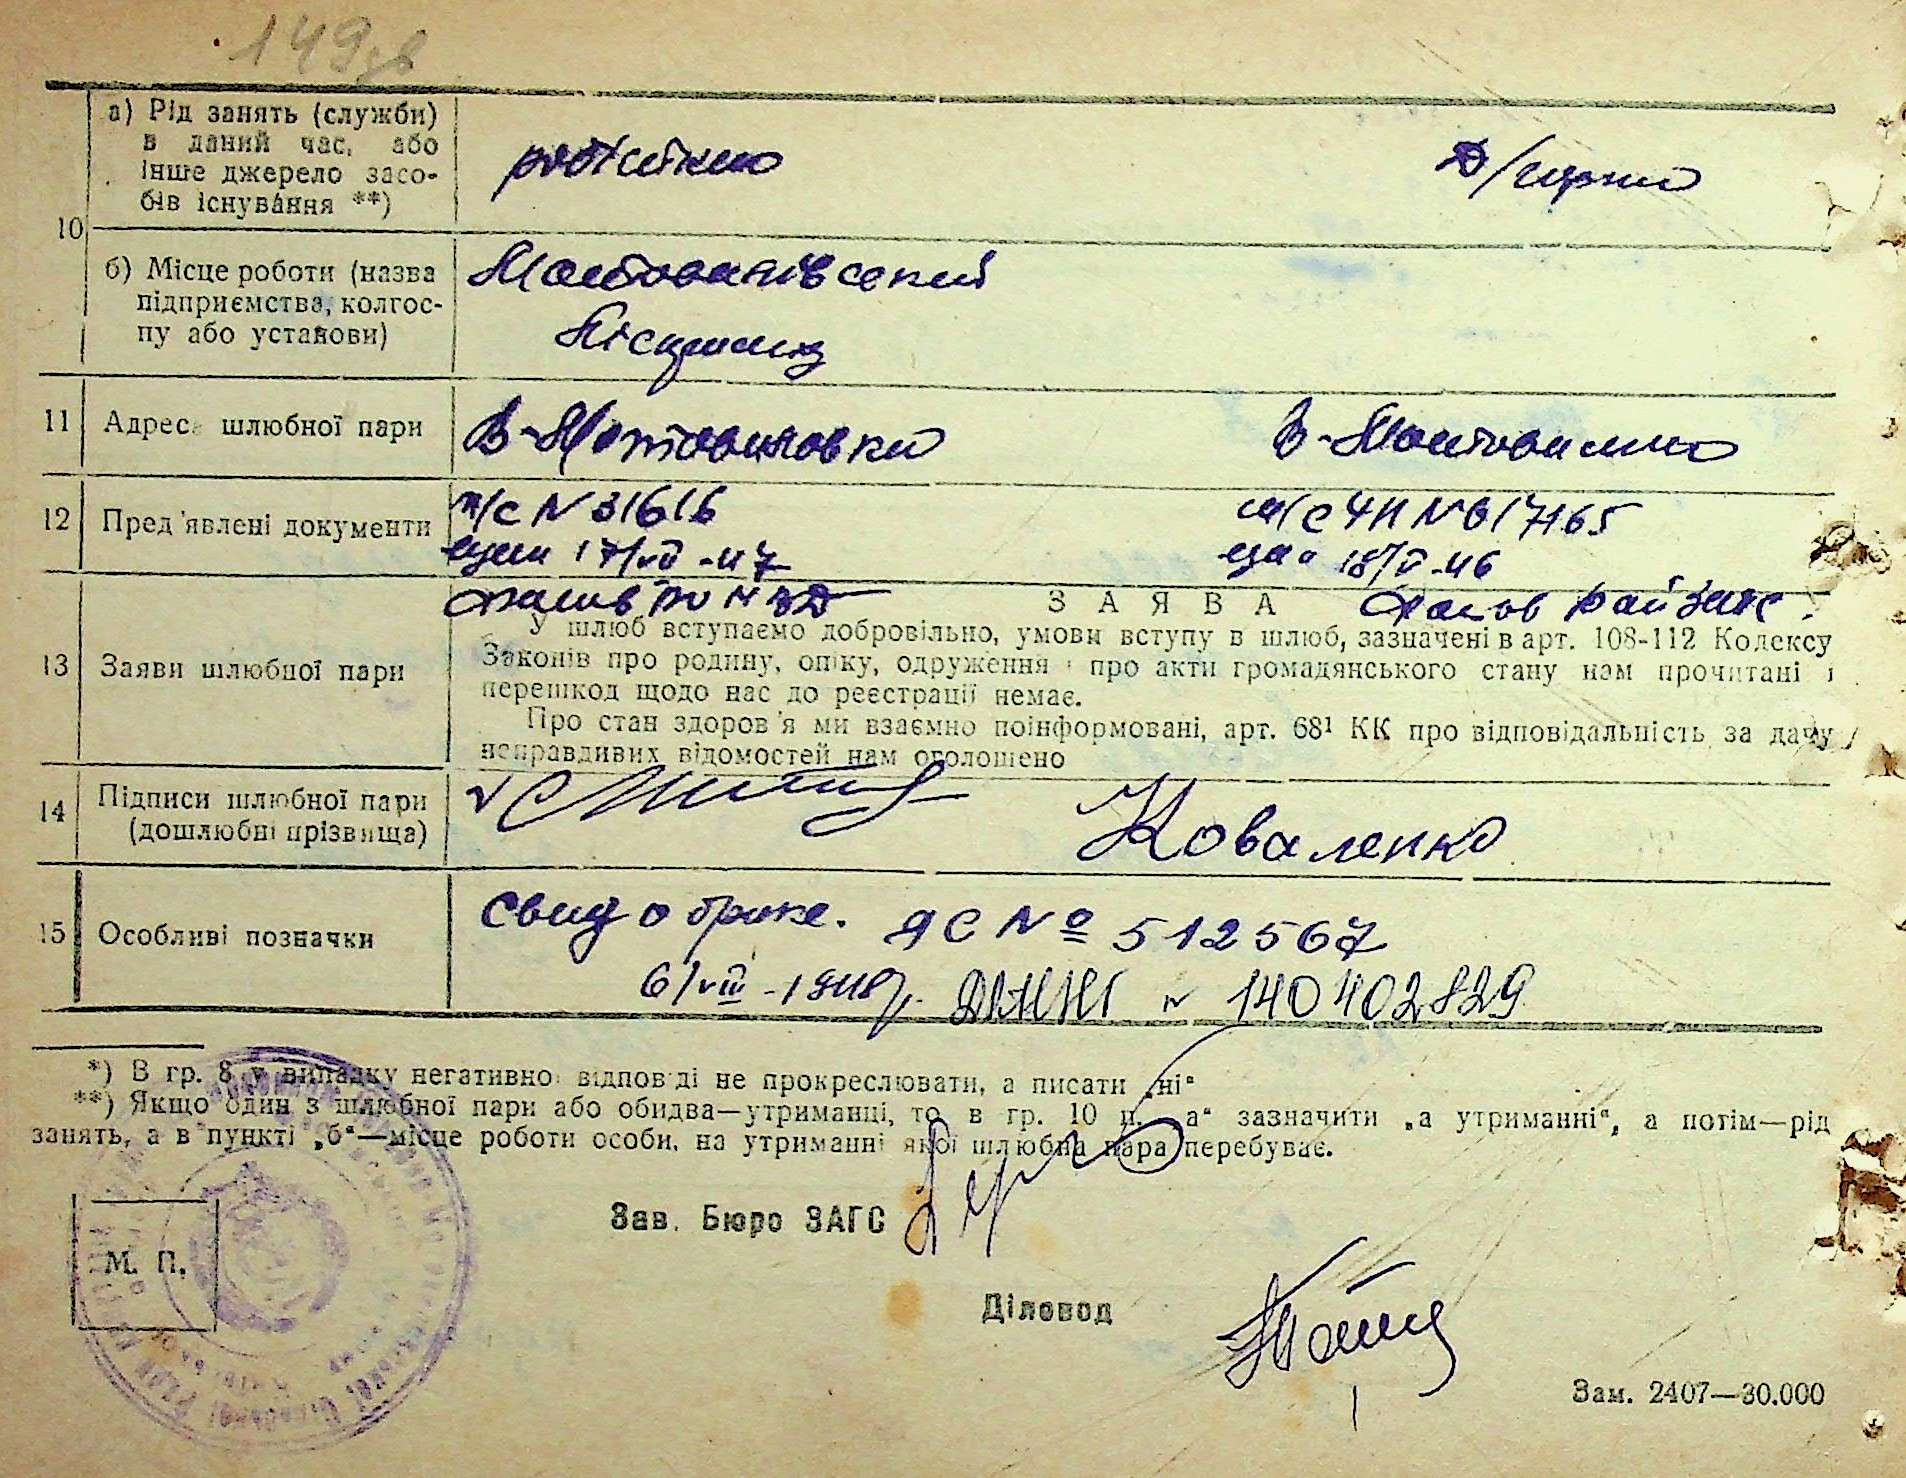 149
а) Рід занять (служби)
в даний час, або
інше джерело засо-
бів існування **)
10
б) Місце роботи (назва
підприємства, колгос-
пу або установи)
11 Адреса шлюбної пари В-Мотовиловка
12 Пред'явлені документи
п/с N 31616
м/с ЧП N 017165
17/VII-47
18/V-46
З А Я В А
13 Заяви шлюбної пари
У шлюб вступаємо добровільно, умови вступу в шлюб, зазначені в арт. 108-112 Кодексу
Законів про родину, опіку, одруження і про акти громадянського стану нам прочитані і
перешкод щодо нас до реєстрації немає.
Про стан здоров'я ми взаємно поінформовані, арт. 68¹ КК про відповідальність за дачу
неправдивих відомостей нам оголошено
14 Підписи шлюбної пари
(дошлюбні прізвища)
Коваленко
15 Особливі позначки
Свид о браке. ЯС № 512567
6/VIII-1948г. N 140402829
*) В гр. 8 у випадку негативної відповіді не прокреслювати, а писати „ні“
**) Якщо один з шлюбної пари або обидва—утриманці, то в гр. 10 п. „а“ зазначити „а утриманні“, а потім—рід
занять, а в пункті „б“—місце роботи особи, на утриманні якої шлюбна пара перебуває.
Зав. Бюро ЗАГС
М. П.
Діловод
Зам. 2407—30.000